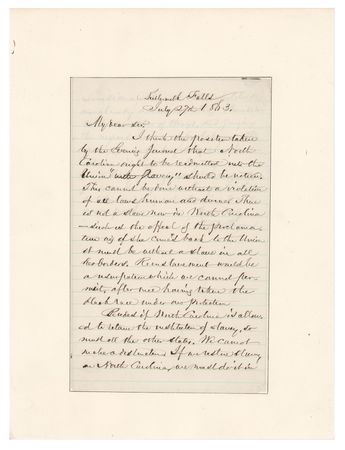 Falls
July 27th 1863.
My dear sir
I think the position taken
by the Evening Journal that North
Carolina ought to be readmitted into the
Union "with slavery" should be
This cannot be done without a violation
of all laws human and divine. There
is not a slave now in North Carolina
— such is the effect of the proclama-
tion, if she comes back to the Union
it must be without a slave in all
her borders. Reenslavement would be
a usurpation which we cannot per-
mit, after once having taken the
black race under our protection
Besides if North Carolina is allow
ed to retain the institution of slavery, so
must all the other states. We cannot
make a distinction. If we restore slavery
in North Carolina, we must do it in